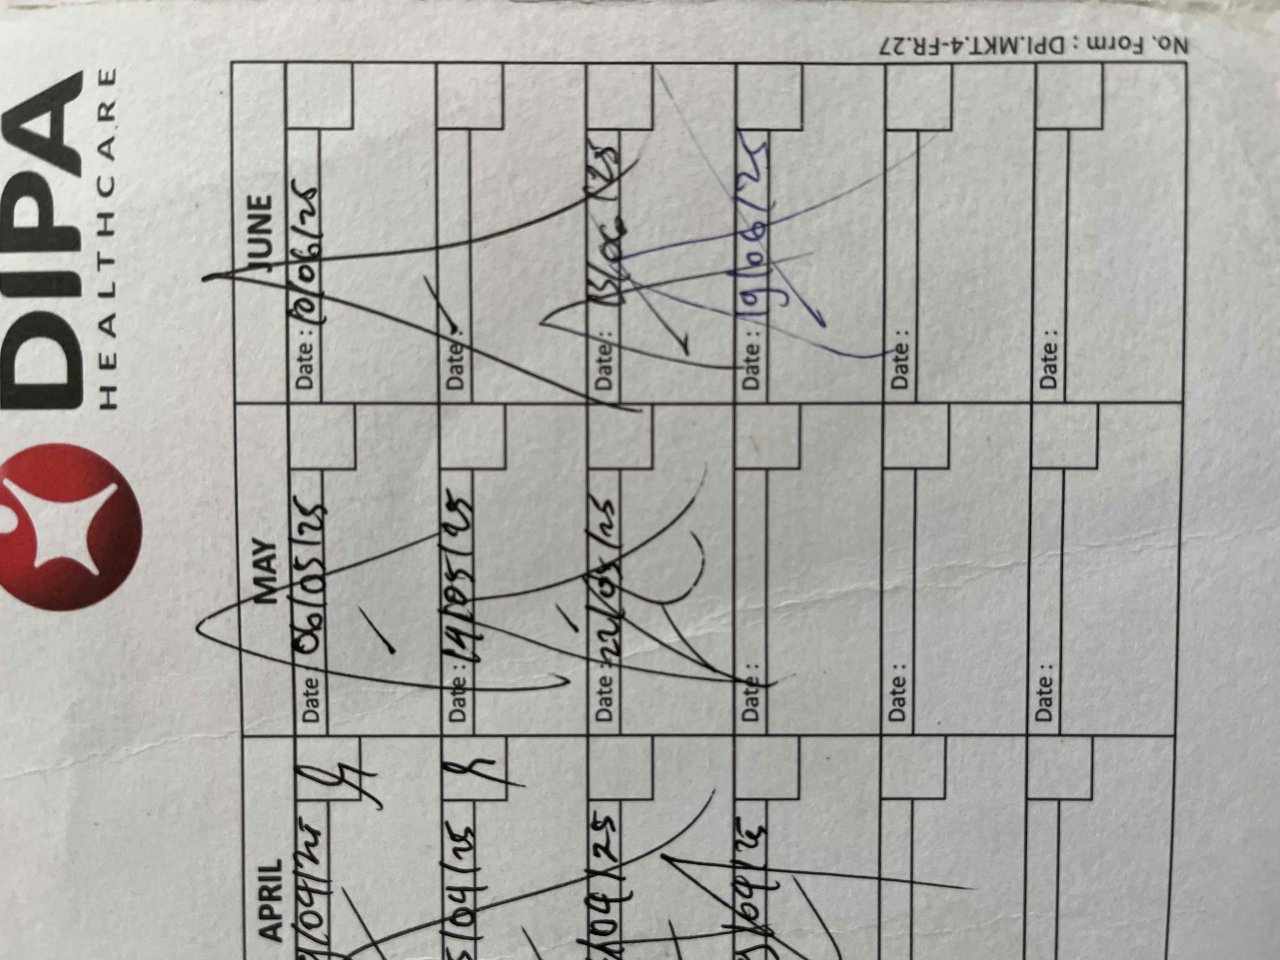 DIPA
HEALTHCARE
No. Form : DPI.MKT.4-FR.27
APRIL
MAY
JUNE
/04/25
Date : 06/05/25
Date : 10/06/25
5/04/25
Date : 14/05/25
Date :
/04/25
Date : 22/05/25
Date : 13/06/25
/04/25
Date :
Date : 19/06/25
Date :
Date :
Date :
Date :